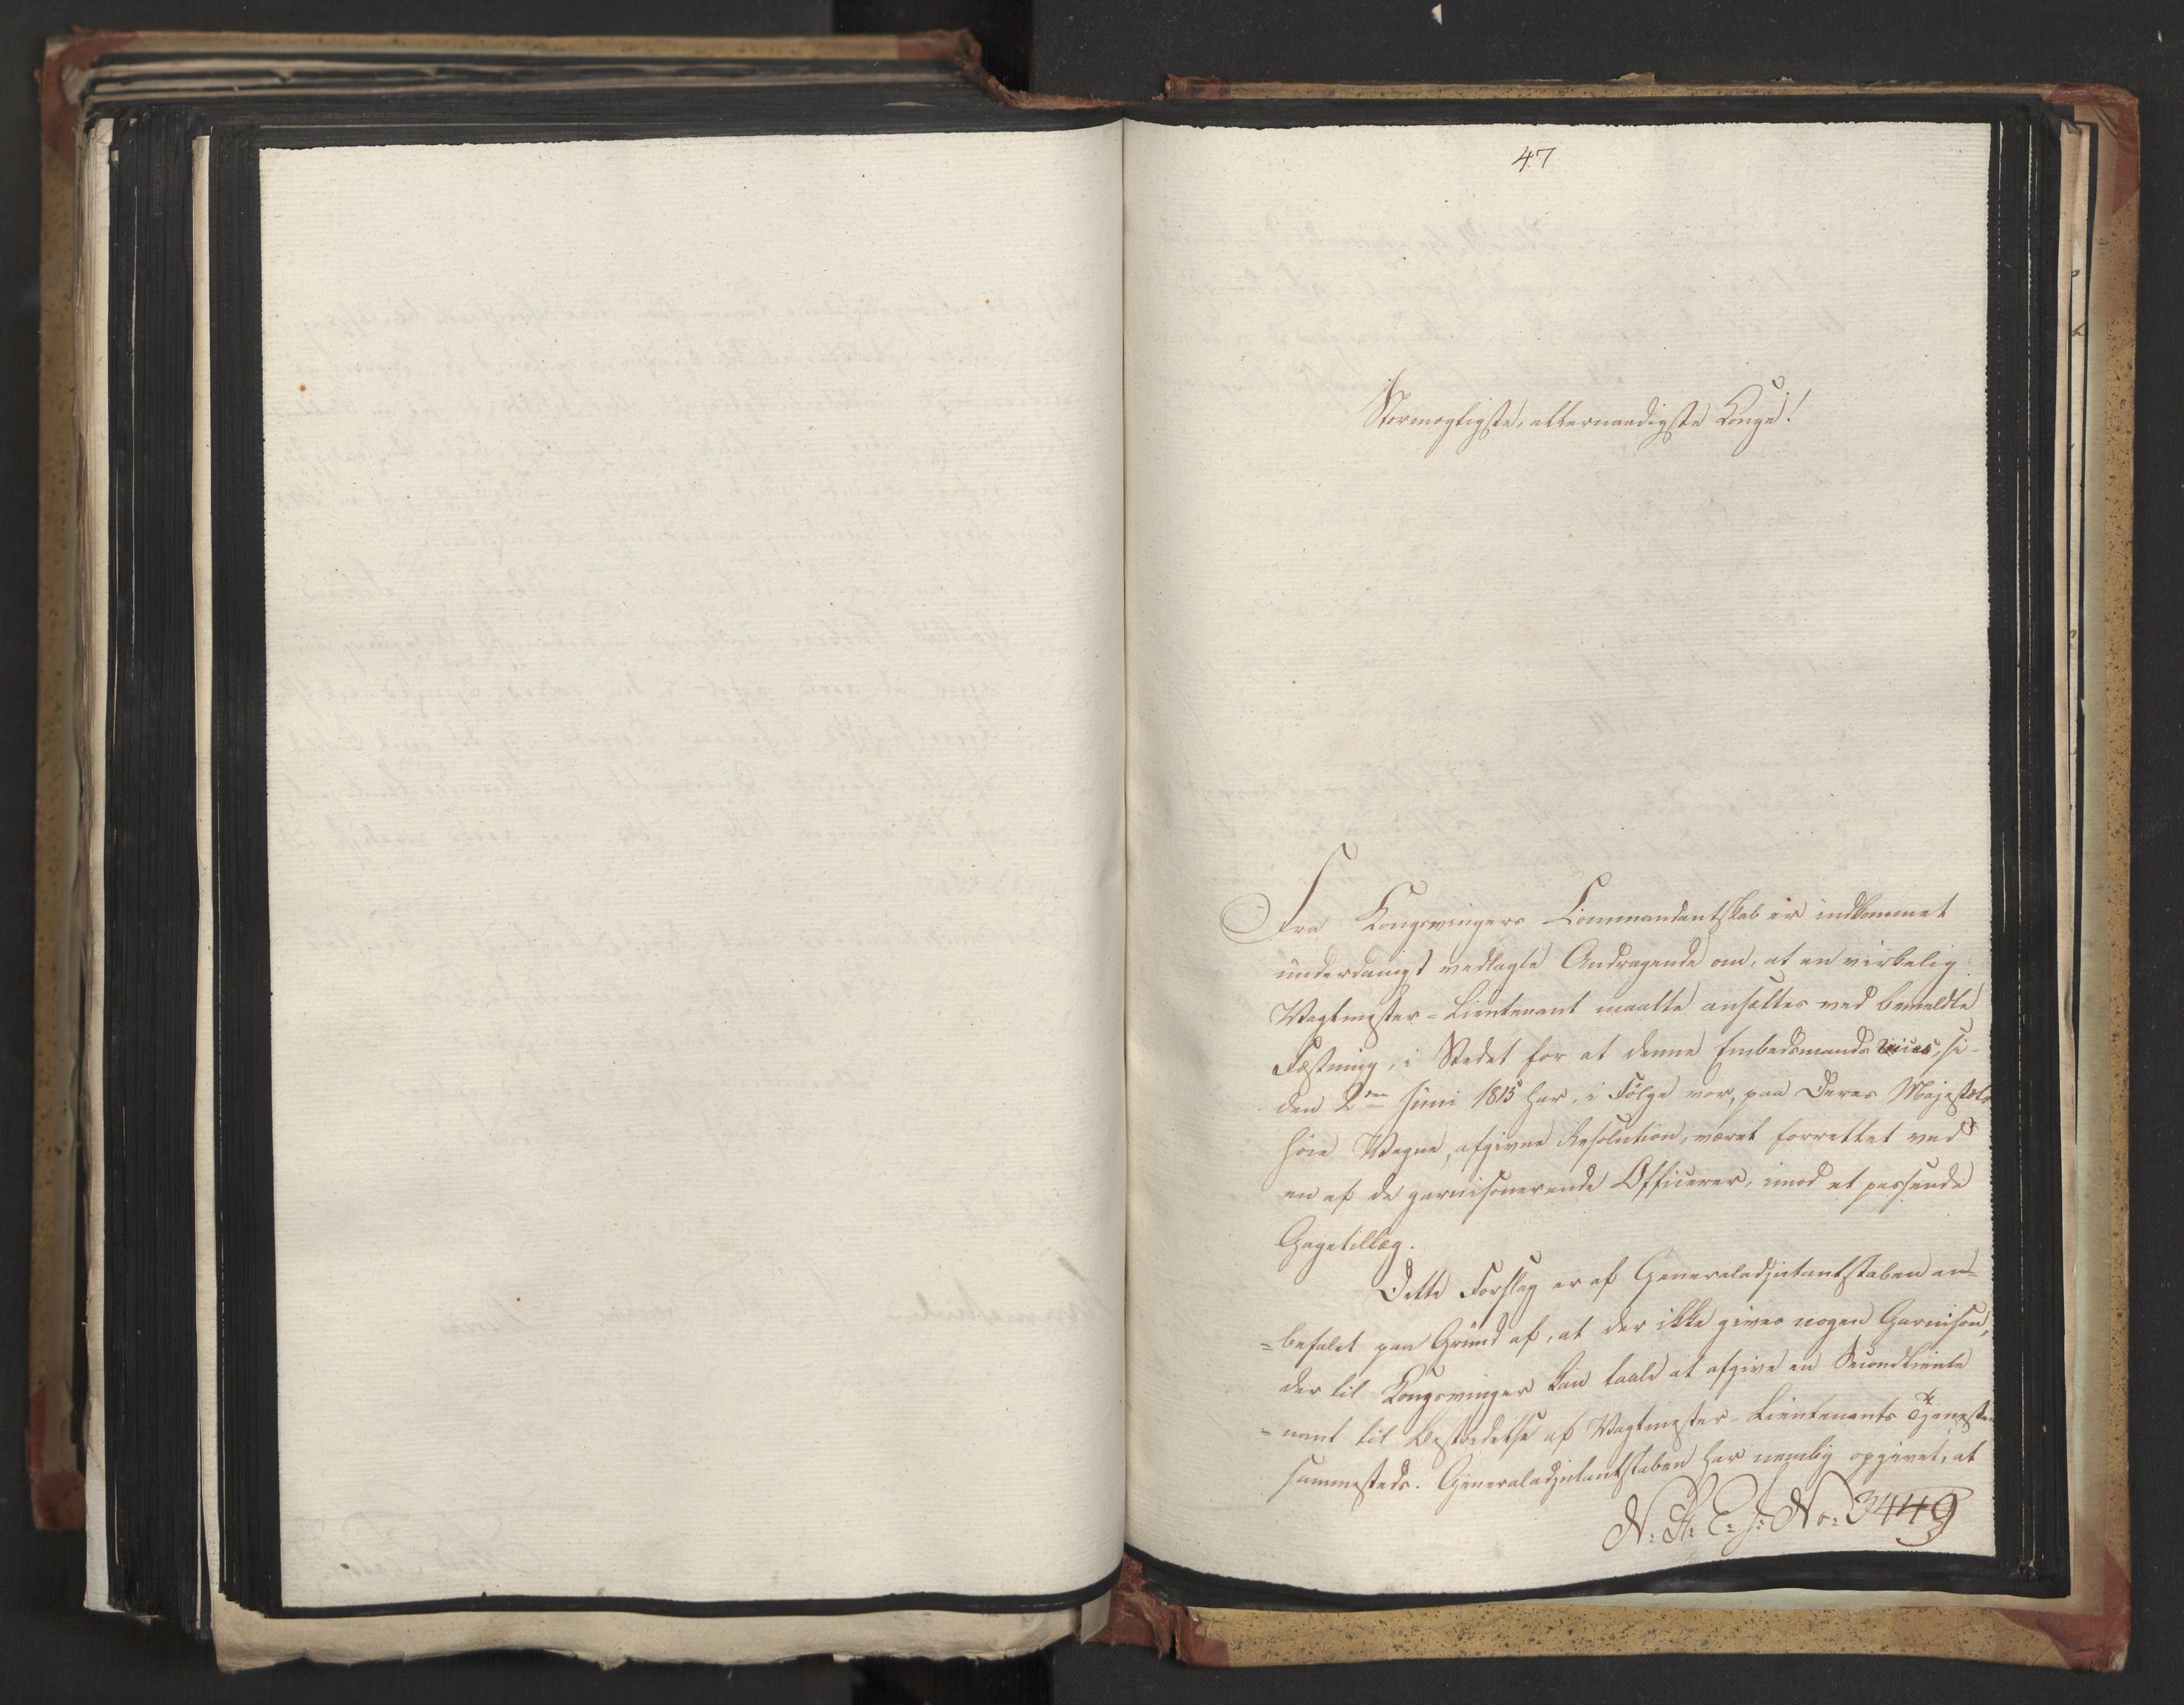 47
Stormægtigste, allernaadigste Konge!
Fra Kongsvingers Commandantskab er indkommet
underdanigst vedlagte Andragende om, at en virkelig
Vagtmester-Lieutenant maatte ansættes ved bemeldte
Fæstning, i Stedet for at denne Embedsmands vices, si-
den 2den Juni 1815 har, i Følge vor, paa Deres Majestæts
høie Vegne, afgivne Resolution, været forrettet ved
en af de garnisonerende Officerer, imod et passende
Gagetillæg.
Dette Forslag er af Generaladjutantstaben an-
=befalet paa Grund af, at der ikke gives nogen Garnison,
der til Kongsvinger kan taale at afgive en Secondlieute
=nant til Bestridelse af Vagtmester-Lieutenants Tjenesten
sammesteds. Generaladjutantstaben har nemlig opgivet, at
N: St: E: J: No: 3449